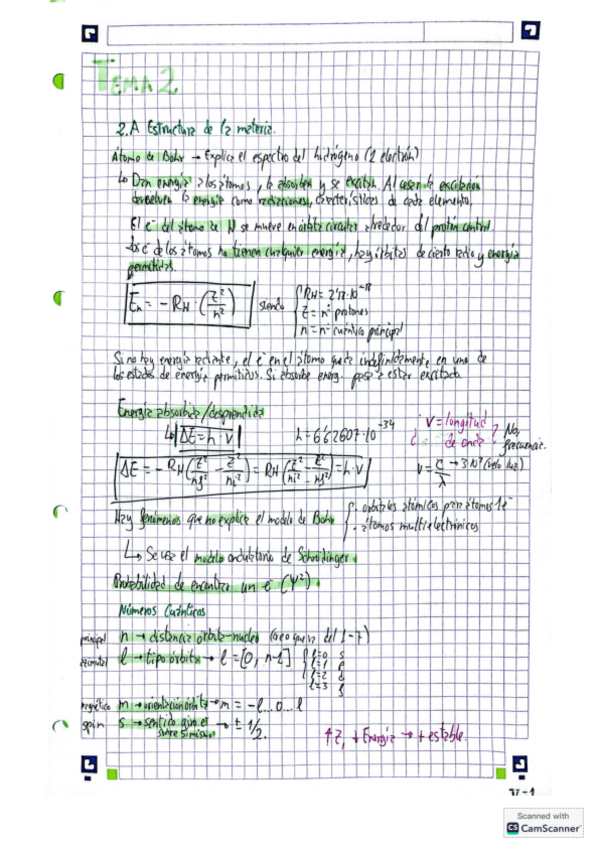 TEMA 2
2.A Estructura de la materia.
Átomo de Bohr → Explica el espectro del hidrógeno (1 electrón)
↳ Dan energía a los átomos, la absorben y se excitan. Al cesar la excitación
devuelven la energía como radiaciones, características de cada elemento.
El e⁻ del átomo de H se mueve en órbita circular alrededor del protón central.
Los e⁻ de los átomos no tienen cualquier energía, hay órbitas de cierto radio y energía
permitidas.
En = - RH · (Z²/n²) siendo { RH = 2'18·10⁻¹⁸
Z = nº protones
n = nº cuántico principal
Si no hay energía radiante, el e⁻ en el átomo queda indefinidamente en uno de
los estados de energía permitidos. Si absorbe energ. pasa a estar excitado.
Energía absorbida/desprendida
↳ |ΔE = h · v| h = 6'62607·10⁻³⁴
¿ v = longitud de onda ? No, frecuencia.
ΔE = - RH (Z²/nf² - Z²/ni²) = RH (Z²/ni² - Z²/nf²) = h·v
v = c/λ → 3·10⁸ (velo luz)
Hay fenómenos que no explica el modelo de Bohr { · orbitales atómicos para átomos 1e⁻
· átomos multielectrónicos
↳ Se usa el modelo ondulatorio de Schrödinger.
Probabilidad de encontrar un e⁻ (Ψ²).
Números Cuánticos
principal n → distancia órbita-núcleo (creo que va del 1-7)
l → tipo órbita → l = [0, n-1] { l=0 s
l=1 p
l=2 d
l=3 f
magnético m → orientación órbita → m = -l...0...l
spin s → sentido giro e⁻ sobre si mismo → ± 1/2.
↑Z, ↓Energía → + estable.
Scanned with
CS CamScanner